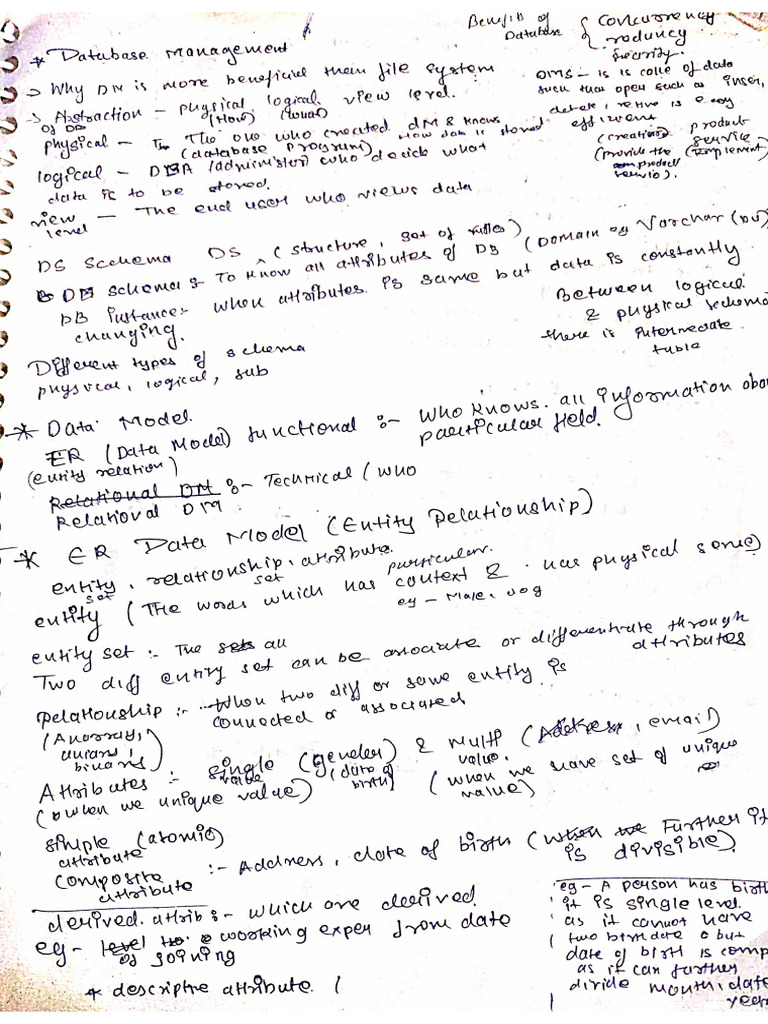 Benefits of Database { Concurrency
reduncy
security.
* Database Management
→ Why DM is more beneficial them file system
→ Abstraction – physical, logical, view level.
of DB (How) (what)
DMS – is is colle of data
such that open such as inser,
delete, retrive is easy
efficient
(creation) product
service
(provide the (implement)
product
servic).
physical – The one who created DM & knows
(database program) How data is stored
logical – DBA (administer) who decide what
data is to be stored.
view level – The end user who views data
DS Scchema DS (structure, set of rules)
DB schema :- To know all attributes of DB (Domain eg Varchar (DV)
DB instance :- when attributes is same but data is constantly
changing.
Between logical
& physical schema
there is intermediate
table
Different types of schema
physical, logical, sub
* Data Model.
ER (Data Model) functional :- who knows all information abou
(entity relation) particular field.
Relational DM :- Technical (who
Relational DM
* ER Data Model (Entity Relationship)
entity, relationship, attribute.
set set particular.
entity (The words which has context & has physical sense)
eg – Male, dog
entity set :- The sets all
Two diff entity set can be associate or differentiate through
attributes
Relationship :- When two diff or same entity is
connected or associated
unians,
binary)
Attributes :- single (gender) & Multi (Address, email)
value (date of birth) value.
(when we unique value) (when we have set of unique
value)
simple (atomic)
attribute
composite attribute :- Address, date of birth (when we Further it
is divisible).
derived. attrib :- which are derived.
eg – level working exper from date
of joining
* descriptve attribute. (
eg – A person has birth
it is single level.
as it cannot have
two birth date & but
date of birth is comp
as it can further
divide month, date
year